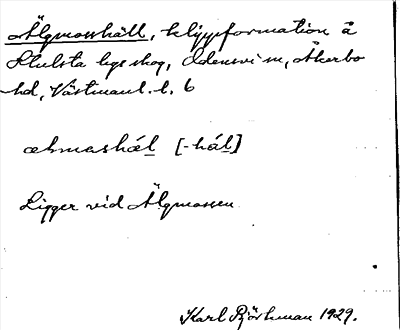 Älgmosshäll, klippformation å
Stulsta hgs skog, Odensvi sn, Åkerbo
hd, Västmanl. l. 6
æl̩mashäl [-hál]
Ligger vid Älgmossen
Karl Björkman 1929.